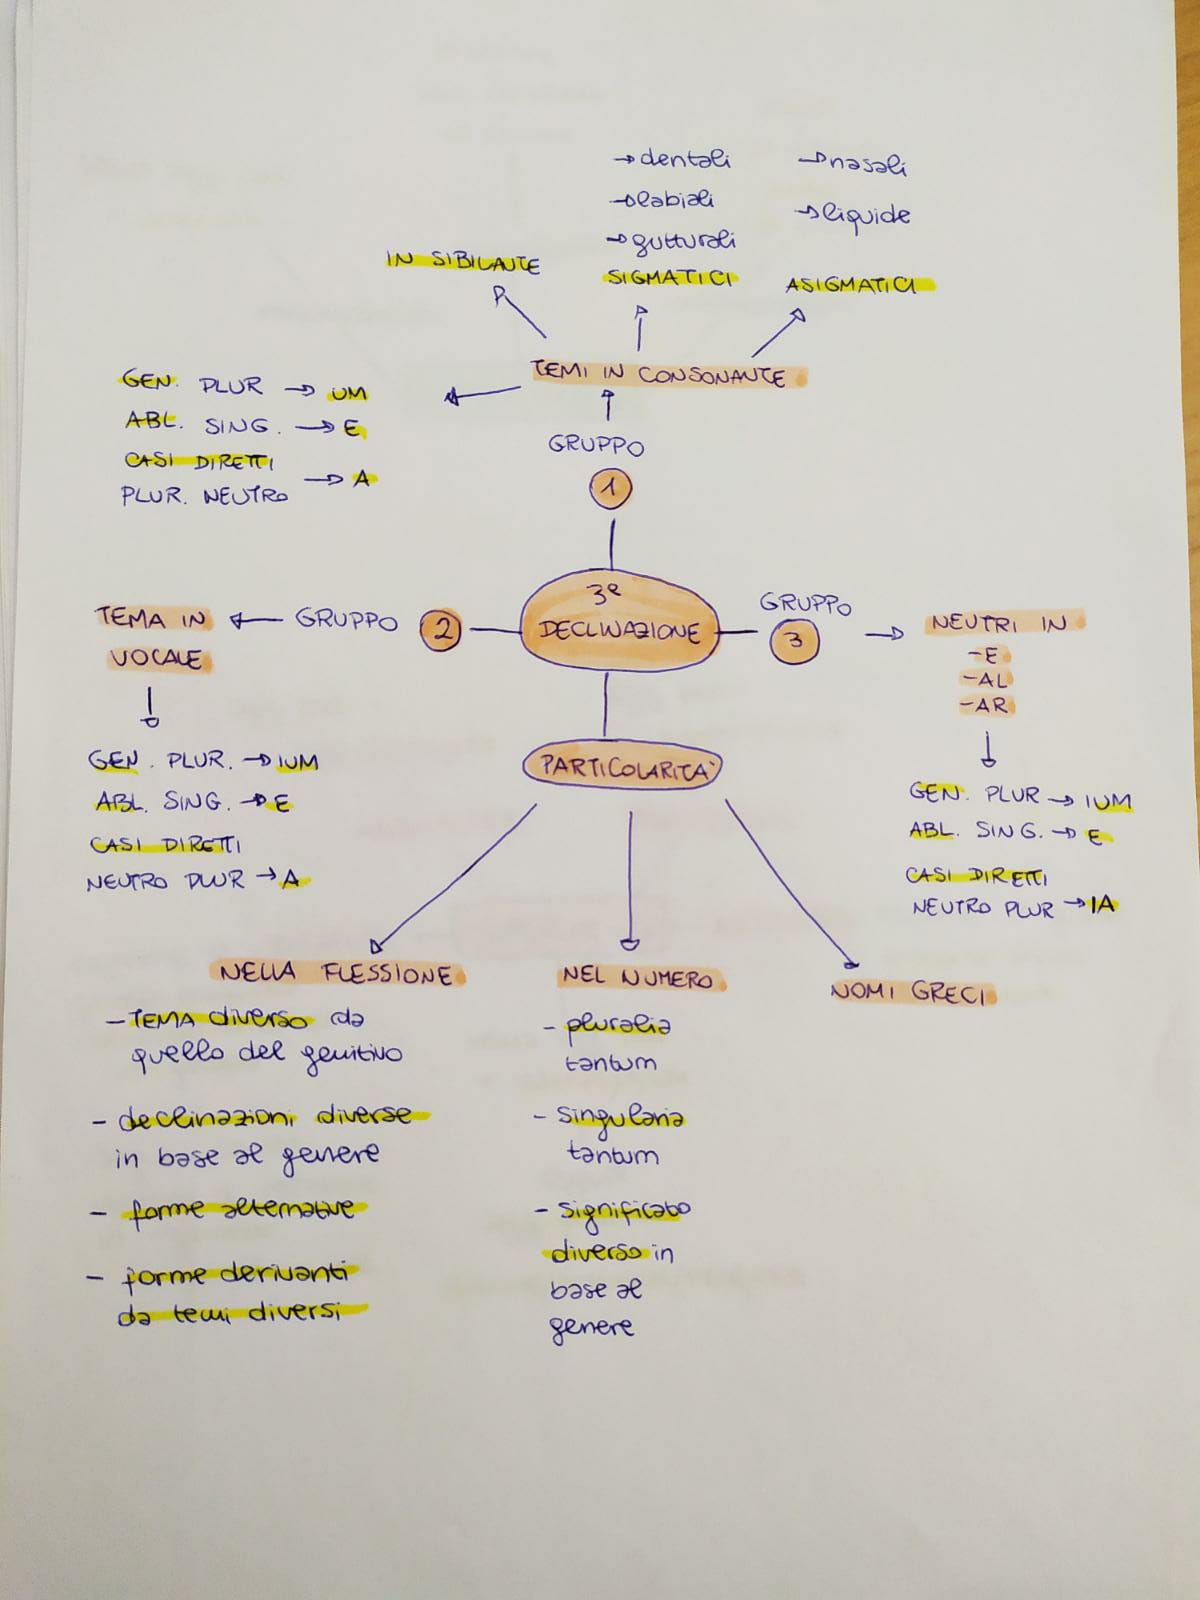 → dentali
→ labiali
→ gutturali
SIGMATICI
→ nasali
→ liquide
ASIGMATICI
IN SIBILANTE
TEMI IN CONSONANTE
GEN. PLUR → UM
ABL. SING. → E
CASI DIRETTI
PLUR. NEUTRO → A
GRUPPO
1
3ª
DECLINAZIONE
GRUPPO 2
TEMA IN
VOCALE
GEN. PLUR. → IUM
ABL. SING. → E
CASI DIRETTI
NEUTRO PLUR → A
GRUPPO
3
NEUTRI IN
-E
-AL
-AR
GEN. PLUR → IUM
ABL. SING. → E
CASI DIRETTI
NEUTRO PLUR → IA
PARTICOLARITA'
NELLA FLESSIONE
- TEMA diverso da
quello del genitivo
- declinazioni diverse
in base al genere
- forme alternative
- forme derivanti
da temi diversi
NEL NUMERO
- pluralia
tantum
- singularia
tantum
- significato
diverso in
base al
genere
NOMI GRECI